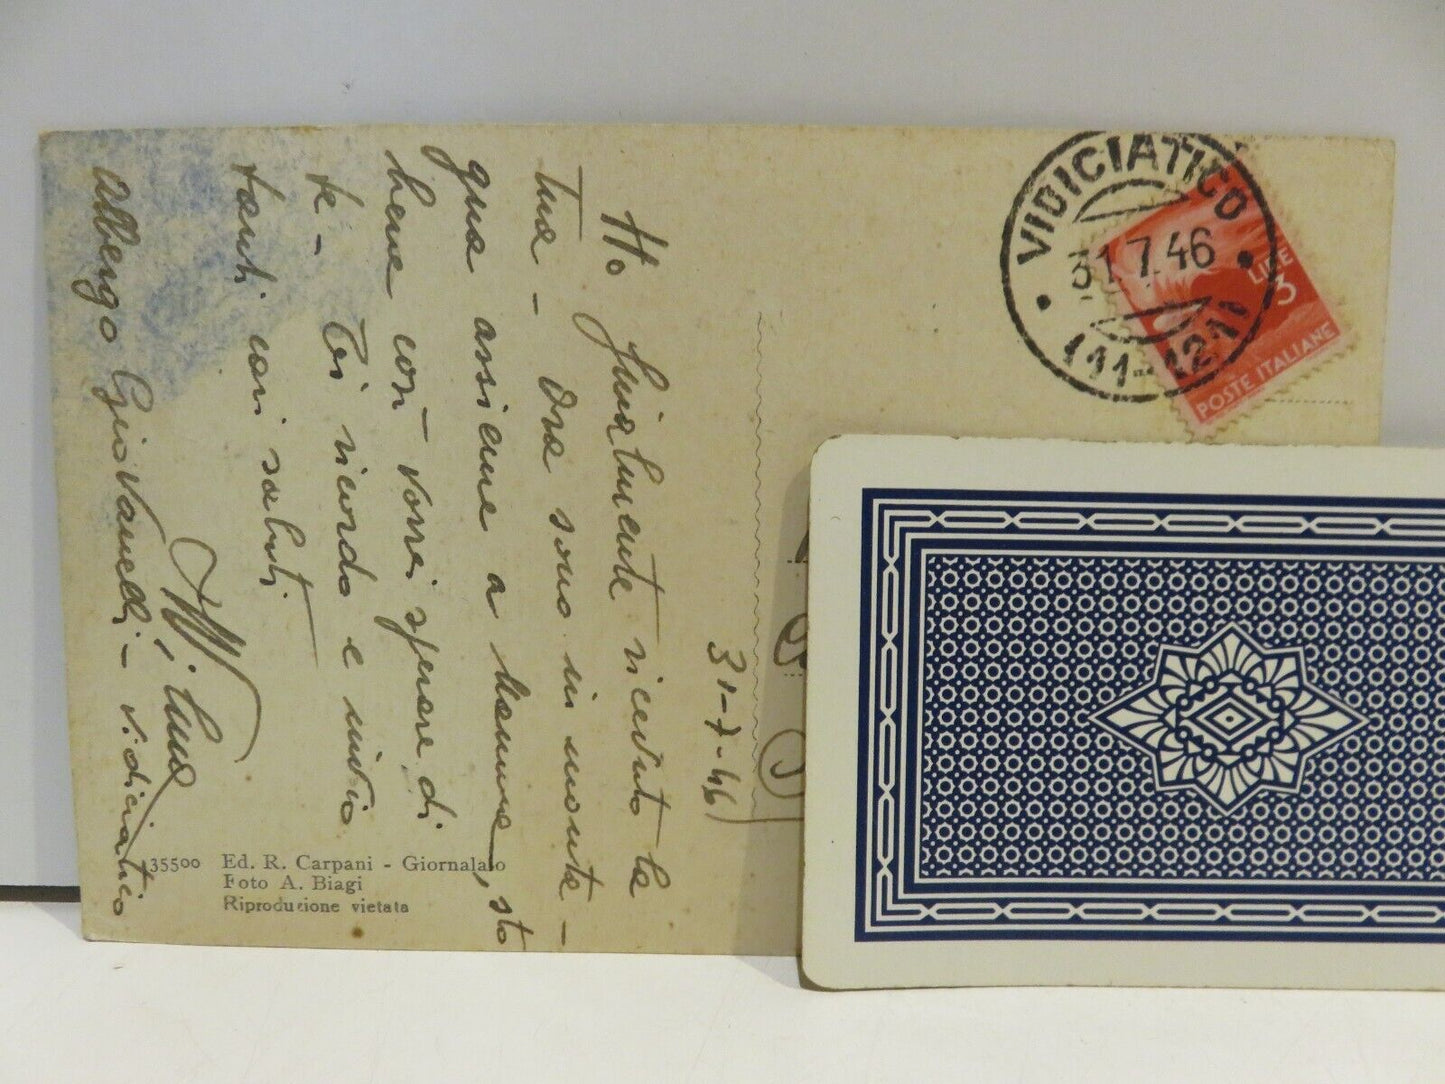 Ho finalmente ricevuto la
tua - Ora sono in monte-
qua assieme a mamma, sto
bene con vorrei sperare di
te - Ti ricordo e invio
tanti cari saluti
Wilma
Albergo Giovanelli - Vidiciatico
31-7-46
VIDICIATICO
31.7.46
(11-12)
LIRE
3
POSTE ITALIANE
35500 Ed. R. Carpani - Giornalaio
Foto A. Biagi
Riproduzione vietata